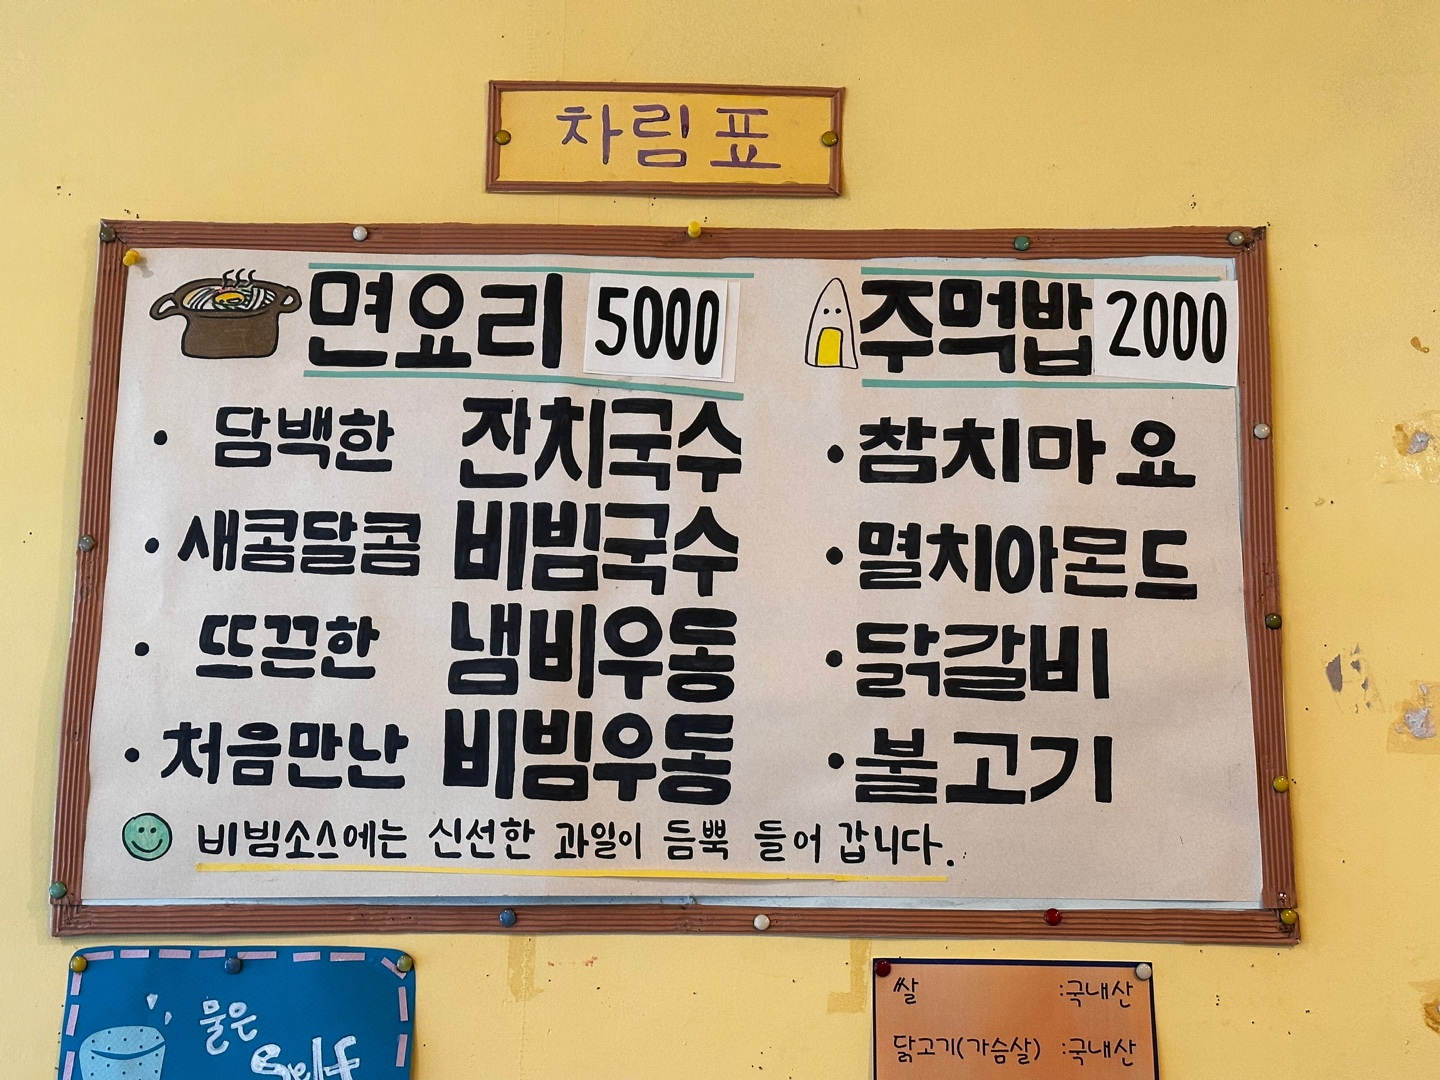 차림표
면요리 5000
담백한 잔치국수
새콤달콤 비빔국수
뜨끈한 냄비우동
처음만난 비빔우동
비빔소스에는 신선한 과일이 듬뿍 들어 갑니다.
주먹밥 2000
참치마요
멸치아몬드
닭갈비
불고기
물은
쌀 :국내산
닭고기(가슴살) :국내산